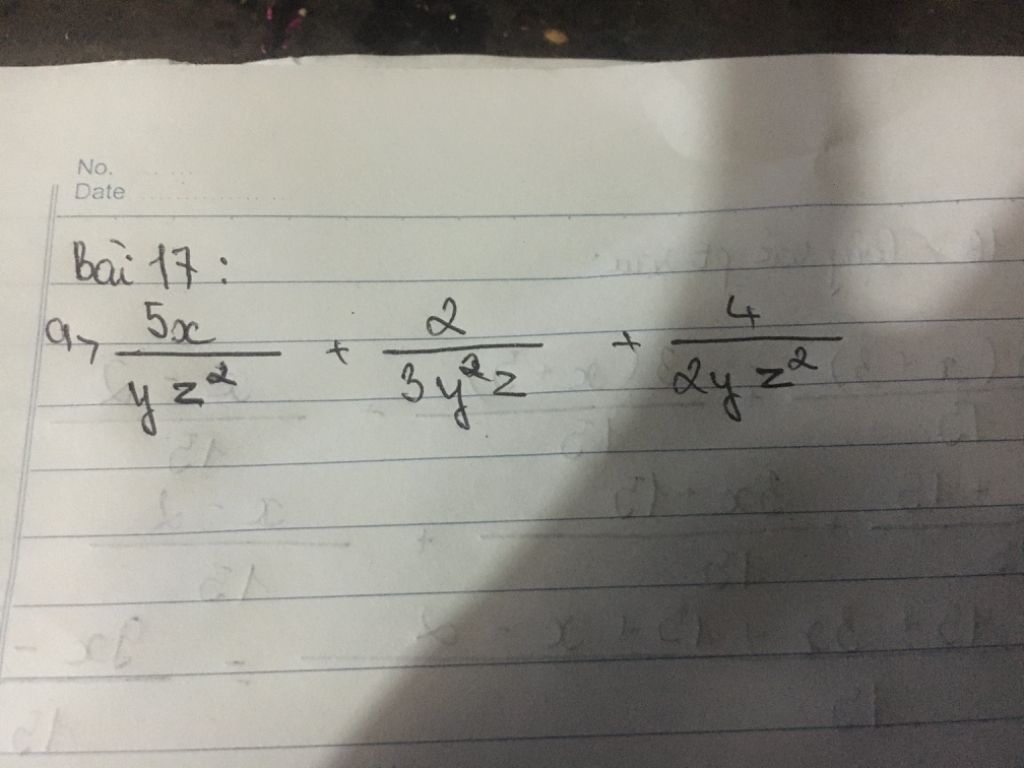 No.
Date
Bài 17 :
a, \frac{5x}{yz^2} + \frac{2}{3y^2z} + \frac{4}{2yz^2}